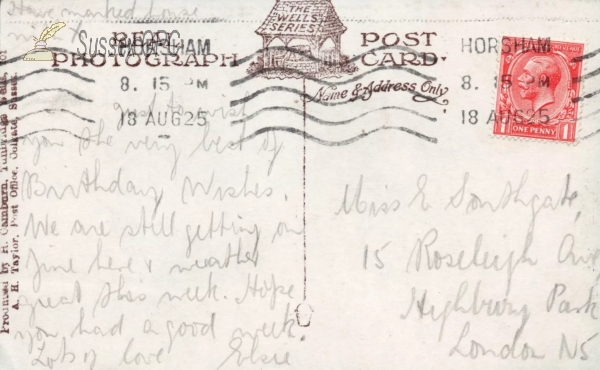 Have marked house
THE
WELLS
SERIES
REAL PHOTOGRAPH
POST CARD.
Name & Address Only
HORSHAM
8. 15 PM
18 AUG 25
HORSHAM
8. 15 PM
18 AUG 25
POSTAGE REVENUE
1 ONE PENNY 1
just to wish
you the very best of
Birthday Wishes.
We are still getting on
fine here & weather
great this week. Hope
you had a good week.
Lots of love Elsie
Miss E. Southgate,
15 Roseleigh Ave
Highbury Park
London N5
Produced by H. Camburn, Tunbridge Wells, for
A. H. Taylor, Post Office, Cooland, Sussex.